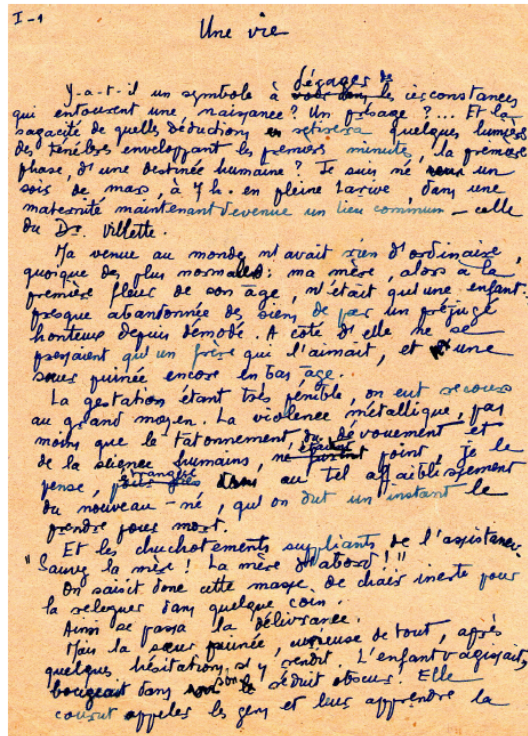 I-1
Une vie
Y-a-t-il un symbole à dégager de les circonstances
qui entourent une naissance? Un présage?... Et la
sagacité de quelles déductions retirera quelques lumières
des ténèbres enveloppant les premières minutes, la première
phase, d'une destinée humaine? Je suis né un
soir de mars, à 7 h. en pleine Larive dans une
maternité maintenant devenue un lieu commun - celle
du Dr. Villette.
Ma venue au monde n'avait rien d'ordinaire,
quoique des plus normales: ma mère, alors à la
première fleur de son âge, n'était qu'une enfant.
presque abandonnée des siens de par un préjugé
honteux depuis démodé. A côté d'elle ne se
pressaient qu'un frère qui l'aimait, et d'une
sœur puinée encore en bas âge.
La gestation étant très pénible, on eut recours
au grand moyen. La violence métallique, pas
moins que le tatonnement du dévouement et
de la science humains, n'était point, je le
pense, étrangère au tel affaiblissement
du nouveau-né, qu'on dut un instant le
prendre pour mort.
Et les chuchotements suppliants de l'assistance
"Sauvez la mère! La mère d'abord!"
On saisit donc cette masse de chair inerte pour
la releguer dans quelque coin.
Ainsi se passa la délivrance.
Mais la sœur puinée, curieuse de tout, après
quelques hésitations s'y rendit. L'enfant vagissait,
bougeait dans son réduit obscur. Elle
courut appeler les gens et leur apprendre la